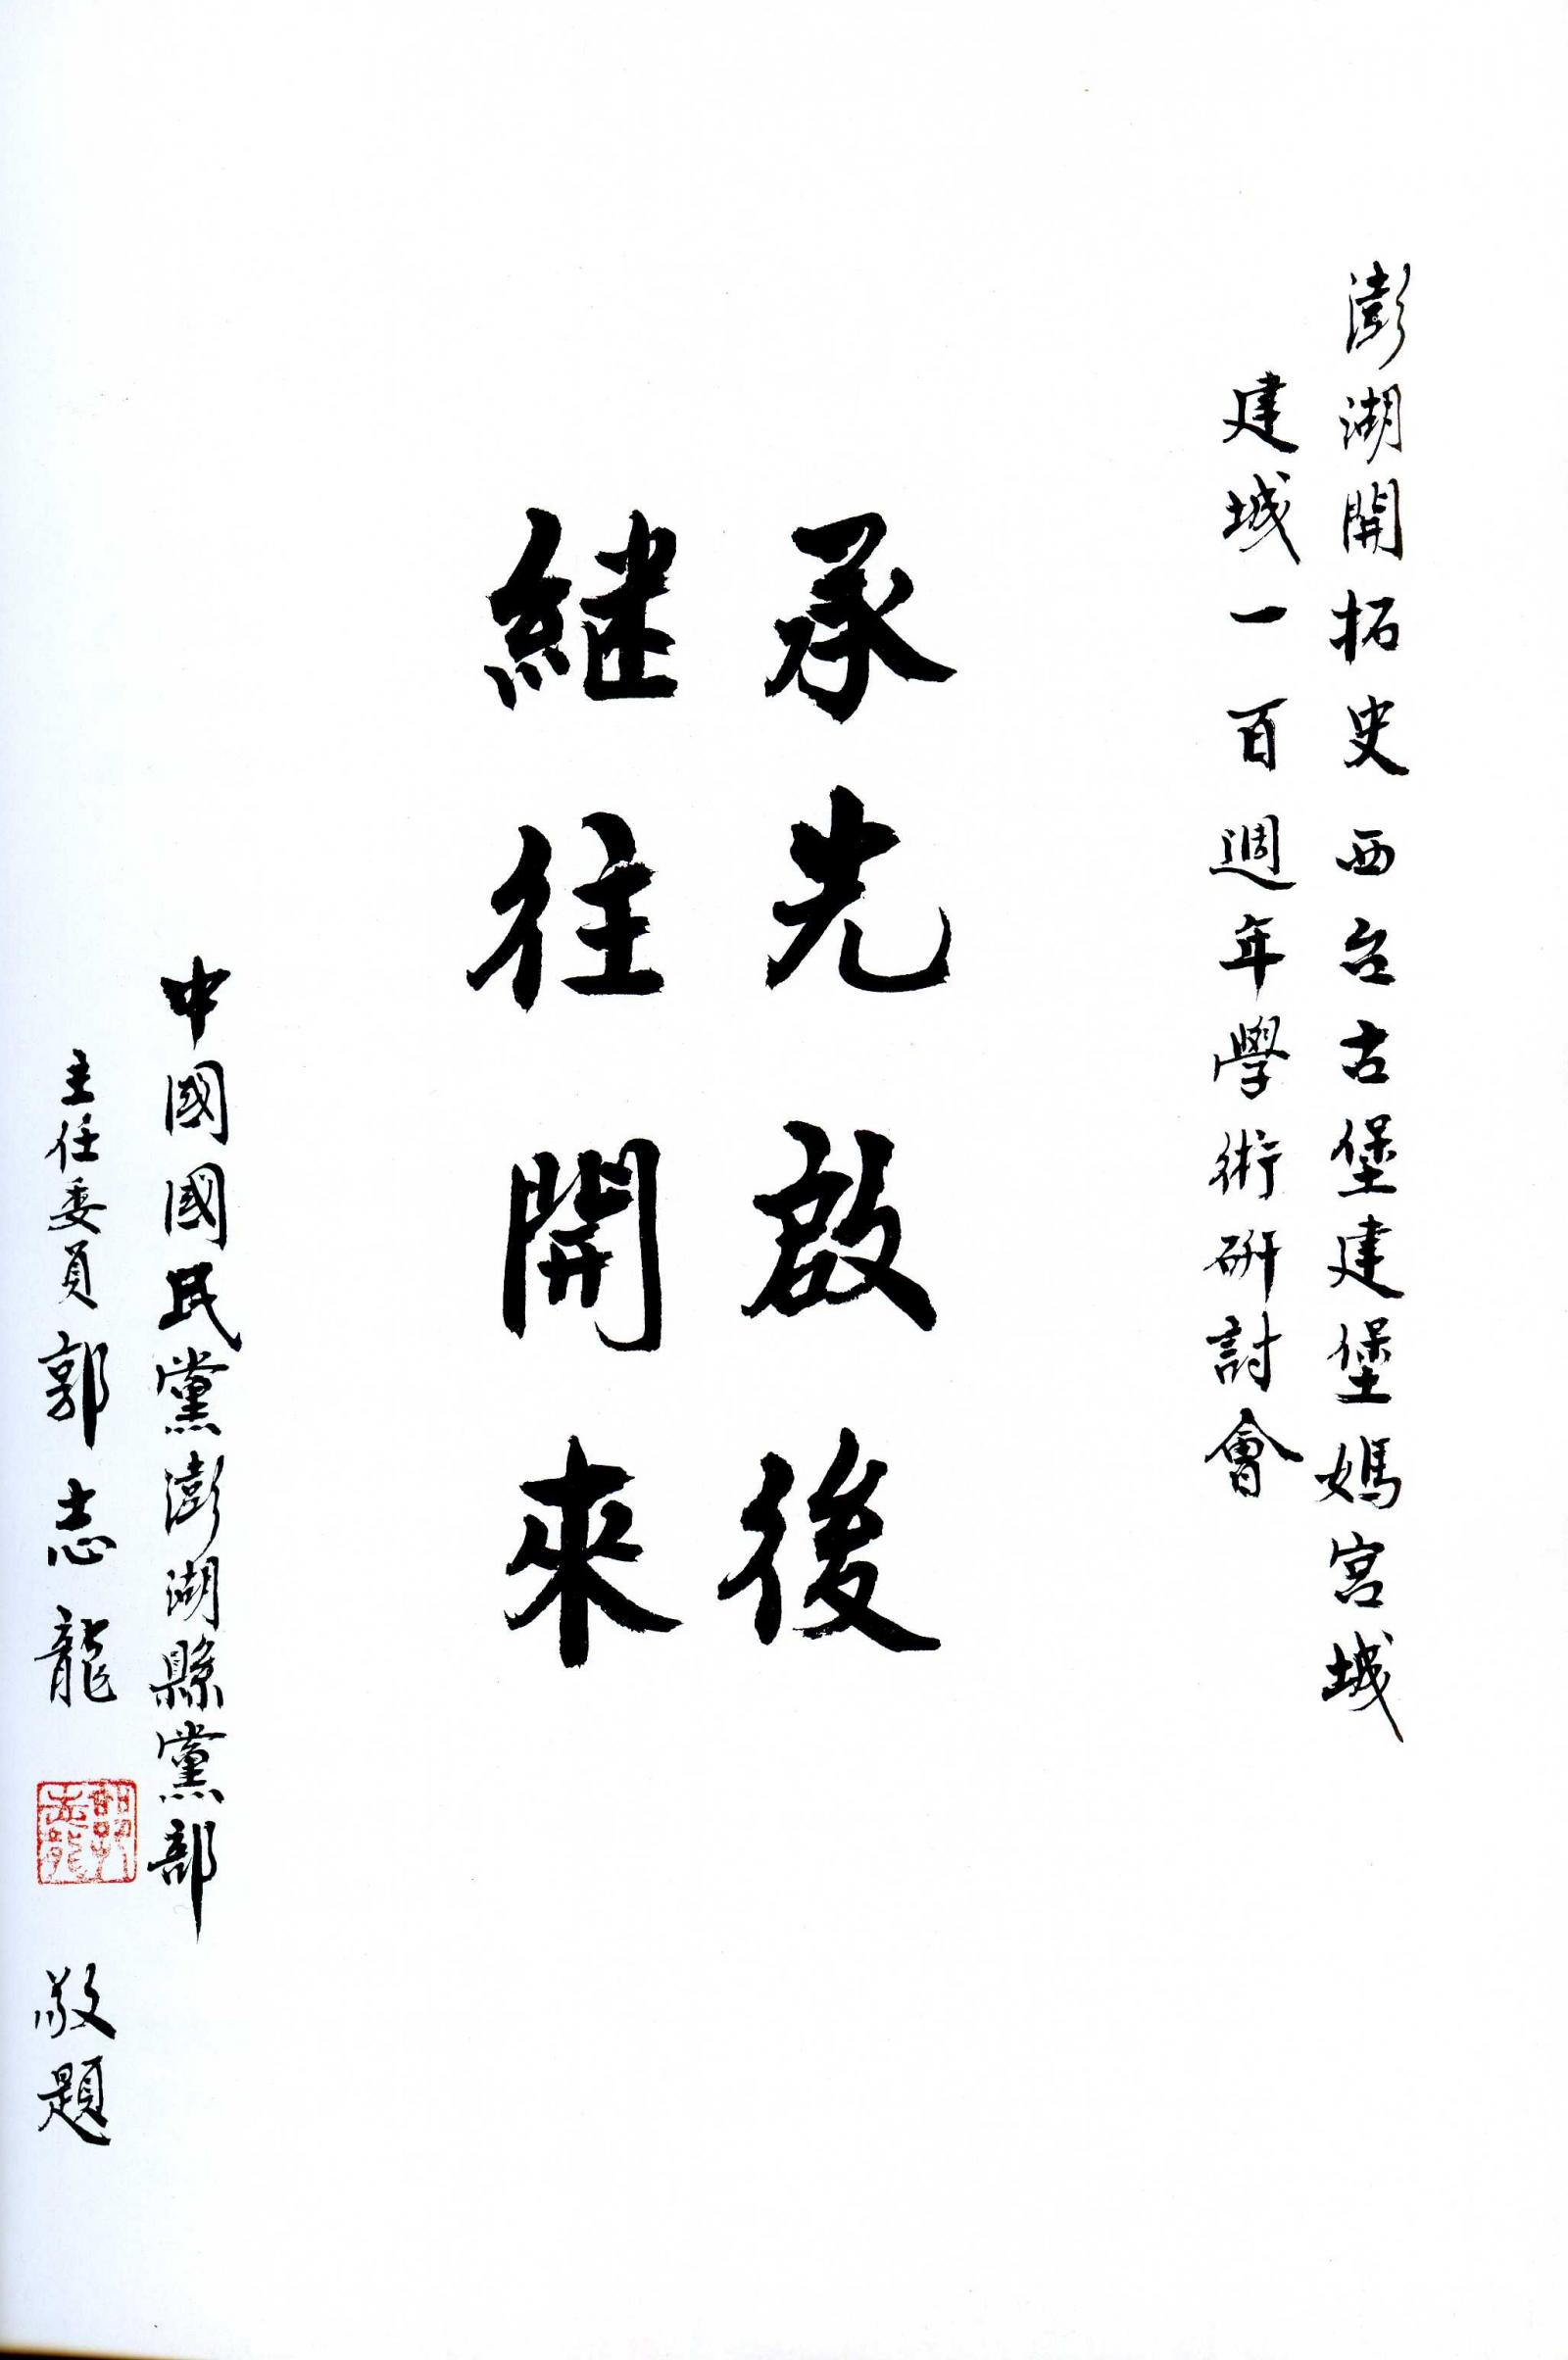 澎湖開拓史西台古堡建堡媽宮城
建城一百週年學術研討會
承先啟後
継往開來
中國國民黨澎湖縣黨部
主任委員郭志龍
郭志龍
敬題